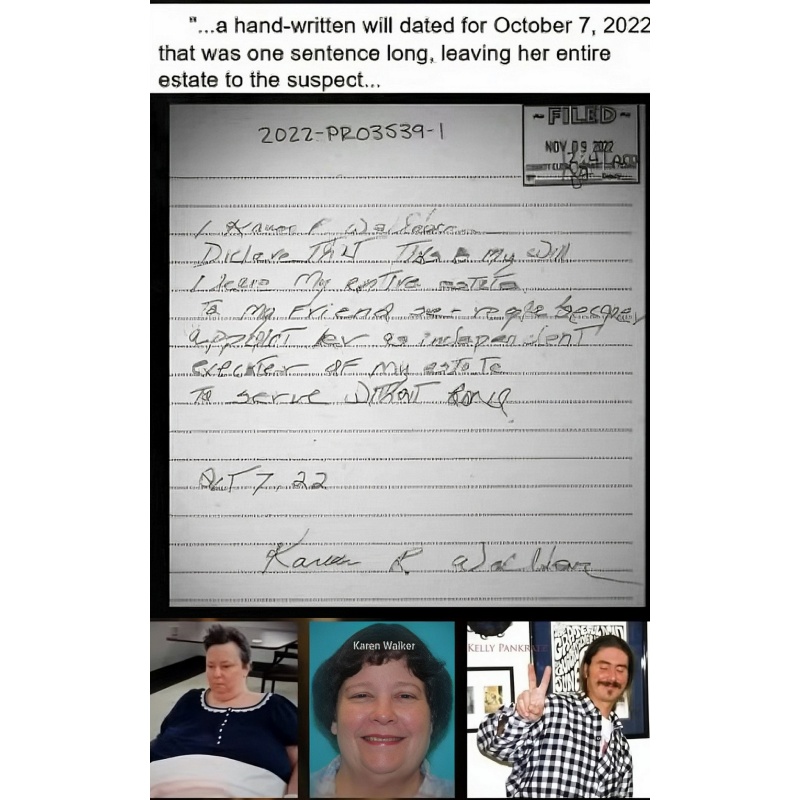 "...a hand-written will dated for October 7, 2022
that was one sentence long, leaving her entire
estate to the suspect...
~FILED~
2022-PR03539-1
NOV 09 2022
I Karen R
Diclare That This is my will
I leave My entire estate
To My Friend
appoint her as independent
executer of my estate
To serve Without Bond
Oct 7, 22
Karen R
Karen Walker
KELLY PANKRAT